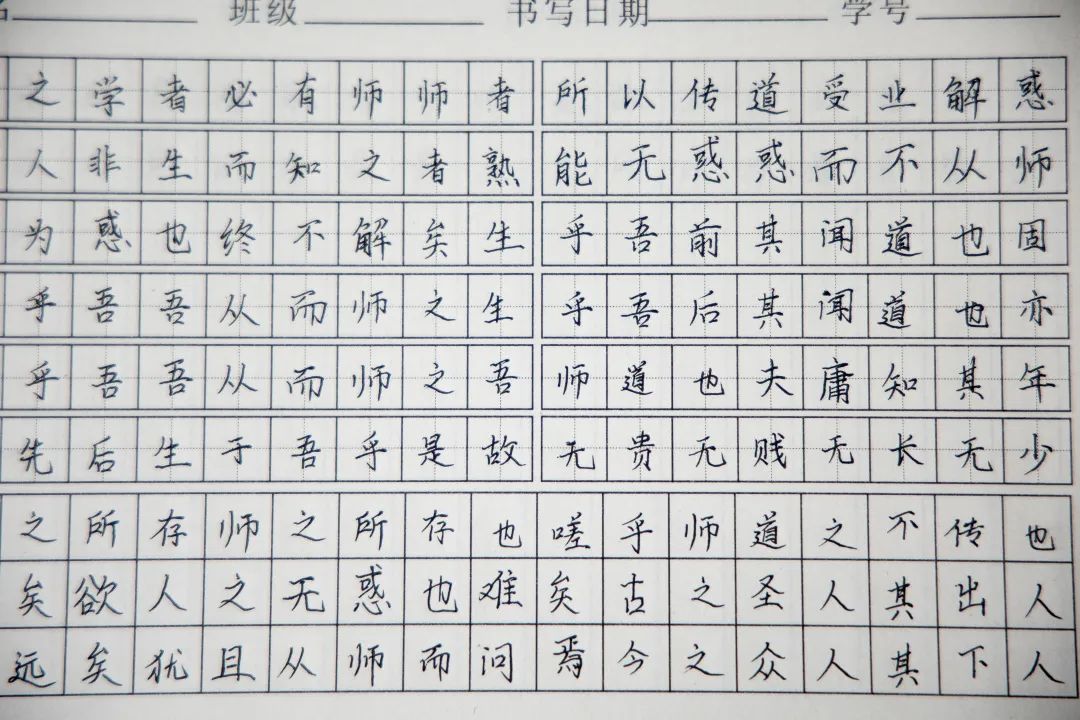 名 班级 书写日期 学号
之学者必有师师者所以传道受业解惑
人非生而知之者熟能无惑惑而不从师
为惑也终不解矣生乎吾前其闻道也固
乎吾吾从而师之生乎吾后其闻道也亦
乎吾吾从而师之吾师道也夫庸知其年
先后生于吾乎是故无贵无贱无长无少
之所存师之所存也嗟乎师道之不传也
矣欲人之无惑也难矣古之圣人其出人
远矣犹且从师而问焉今之众人其下人